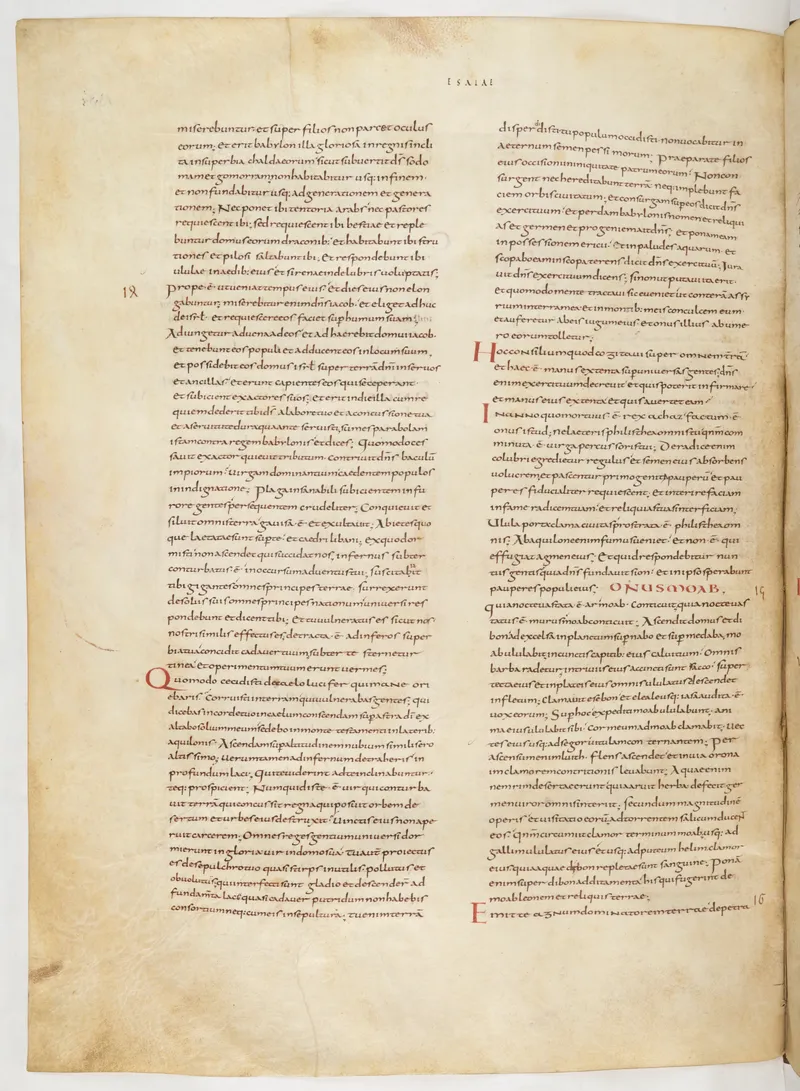 ESAIAE
miserebuntur. et super filios non parcet oculus
eorum; et erit babylon illa gloriosa in regnis incli
ta in superbia chaldaeorum sicut subuertit ds sodo
mam et gomorram; non habitabitur usq; in finem.
et non fundabitur usq; ad generationem et genera
tionem; Nec ponet ibi tentoria arabs nec pastores
requiescent ibi; sed requiescent ibi bestiae et reple
buntur domus eorum draconib; Et habitabunt ibi stru
tiones et pilosi saltabunt ibi; Et respondebunt ibi
ululae in aedib; eius et sirenae in delubris uoluptatis;
18
Prope ē ut ueniat tempus eius et dies eius non elon
gabuntur; miserebitur enim dns iacob. et eliget adhuc
de isrl. et requiescere eos faciet super humum suam;
Adiungetur aduena ad eos et adhaerebit domui iacob.
et tenebunt eos populi et adducent eos in locum suum.
et possidebit eos domus isrl super terrā dni in seruos
et ancillas; et erunt capientes eos qui se ceperant.
et subicient exactores suos; et erit in die illa cum re
quiem dederit tibi ds a labore tuo et a concussione tua
et a seruitute dura qua ante seruisti; sumes parabolam
istam contra regem babylonis et dices; Quomodo ces
sauit exactor quieuit tributum. contriuit dns baculū
impiorum. uirgam dominantium caedentem populos
in indignatione; Plaga insanabili subicientem in fu
rore gentes persequentem crudeliter; Conquieuit et
siluit omnis terra gauisa ē et exultauit; Abietes quo
que laetatae sunt sup te. et caedri libani; ex quo dor
misti non ascendet qui succidat nos; infernus subter
conturbatus ē in occursum aduentus tui; suscitabit
tibi gigantes omnes principes terrae surrexerunt
de soliis suis omnes principes nationum uniuersi res
pondebunt et dicent tibi; Et tu uulneratus es sicut nos
nostri similis effectus es; detracta ē ad inferos super
bia tua concidit cadauer tuum subter te sternetur
tinea et operimentum tuum erunt uermes;
Quomodo cecidisti de caelo lucifer qui mane ori
ebaris. Corruisti in terram qui uulnerabas gentes; qui
dicebas in corde tuo in caelum conscendam super astra di ex
altabo solium meum sedebo in monte testamenti in laterib;
aquilonis. Ascendam sup altitudinem nubium similis ero
altissimo; Uerumtamen ad infernum detraheris in
profundum laci; Qui te uiderint ad te inclinabuntur.
teq; prospicient; Numquid iste ē uir qui conturba
uit terrā qui concussit regna qui posuit orbem de
sertum et urbes eius destruxit. Uinctis eius non ape
ruit carcerem; Omnes reges gentium uniuersi dor
mierunt in gloria uir in domo sua. Tu autē proiectus
es de sepulchro tuo quasi stirps inutilis. pollutus et
obuolutus; qui interfecti sunt gladio et descender ad
fundamta laci; quasi cadauer putridum non habebis
consortium neq; cum eis in sepultura; tu enim terrā
disperdidisti tu populum occidisti. non uocabitur in
aeternum semen pessimorum; Praeparate filios
eius occisioni in iniquitate patrum eorum; Non con
surgent nec hereditabunt terrā neq; implebunt fa
ciem orbis ciuitatum; et consurgam sup eos dicit dns
exercituum. et perdam babylonis nomen et reliqui
as et germen et progeniem ait dns; et ponam eam
in possessionem ericii. et in paludes aquarum. et
scopabo eam in scopa terens dicit dns exercituū; Iura
uit dns exercituum dicens; si non ut putaui ita erit.
et quomodo mente tractaui sic eueniet ut conterā assy
rium in terra mea et in montib; meis conculcem eum.
et auferetur ab eis iugum eius et onus illius ab ume
ro eorum tolletur;
Hoc consilium quod cogitaui super omnem trā.
et haec ē manus extenta sup uniuersas gentes; dns
enim exercituum decreuit et quis poterit infirmare.
et manus eius extenta et quis auertet eam.
In anno quo mortuus ē rex achaz factum ē
onus istud; ne laeteris philisthea omnis tu qnm com
minuta ē uirga percussoris tui; De radice enim
colubri egredietur regulus et semen eius absorbens
uolucrem; et pascentur primogeniti pauperū et pau
peres fiducialiter requiescent; et interire faciam
in fame radicem tuam. et reliquias tuas interficiam;
Ulula porta clama ciuitas prostrata ē philisthea om
nis; Ab aquilone enim fumus ueniet. et non ē qui
effugiat agmen eius; Et quid respondebitur nun
tiis gentis quia dns fundauit sion. et in ipso sperabunt
pauperes populi eius. ONUS MOAB.
15
Quia nocte uastata ē ar moab. conticuit; quia nocte uas
tatus ē murus moab conticuit. Ascendit domus et di
bon ad excelsa in planctum sup nabo et sup medaba. mo
ab ululabit; in cunctis capitib; eius caluitium. Omnis
barba radetur; in triuiis eius accincti sunt sacco. super
tecta eius et in plateis eius omnis ululatus descendet
in fletum; Clamauit esebon et eleale usq; iasa audita ē
uox eorum; Sup hoc expediti moab ululabunt. ani
ma eius ululabit sibi. Cor meum ad moab clamabit. uec
tes eius usq; ad segor uitulam conternantem; Per
ascensum enim luith. flens ascendet et in uia orona
im clamorem contritionis leuabunt; Aquae enim
nemrim desertae erunt quia aruit herba defecit ger
men uiror omnis interiit; secundum magnitudinē
operis et uisitatio eorū ad torrentem salicum ducent
eos; Qnm circumiit clamor terminum moab usq; ad
gallim ululatus eius et usq; ad puteum helim clamor
eius quia aquae dibon repletae sunt sanguine; Ponā
enim super dibon additamenta his qui fugerint de
moab leonem et reliquis terrae;
16
Emitte agnum dominatorem terrae de petra